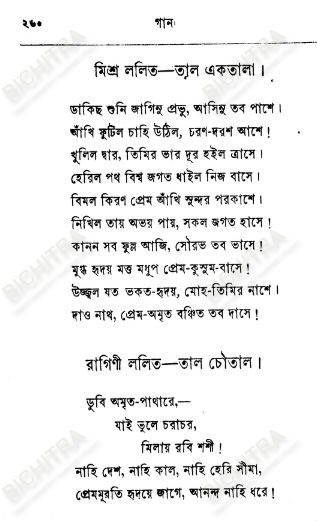 ২৬০ গান
মিশ্র ললিত—তাল একতালা।
ডাকিছ শুনি জাগিনু প্রভু, আসিনু তব পাশে।
আঁখি ফুটিল চাহি উঠিল, চরণ-দরশ আশে!
খুলিল দ্বার, তিমির ভার দূর হইল ত্রাসে।
হেরিল পথ বিশ্ব জগত ধাইল নিজ বাসে।
বিমল কিরণ প্রেম আঁখি সুন্দর পরকাশে।
নিখিল তায় অভয় পায়, সকল জগত হাসে!
কানন সব ফুল্ল আজি, সৌরভ তব ভাসে!
মুগ্ধ হৃদয় মত্ত মধুপ প্রেম-কুসুম-বাসে!
উজ্জ্বল যত ভকত-হৃদয়, মোহ-তিমির নাশে।
দাও নাথ, প্রেম-অমৃত বঞ্চিত তব দাসে!
রাগিণী ললিত—তাল চৌতাল।
ডুবি অমৃত-পাথারে,—
যাই ভুলে চরাচর,
মিলায় রবি শশী!
নাহি দেশ, নাহি কাল, নাহি হেরি সীমা,
প্রেমমূরতি হৃদয়ে জাগে, আনন্দ নাহি ধরে!
BICHITRA
BICHITRA
BICHITRA
BICHITRA
BICHITRA
BICHITRA